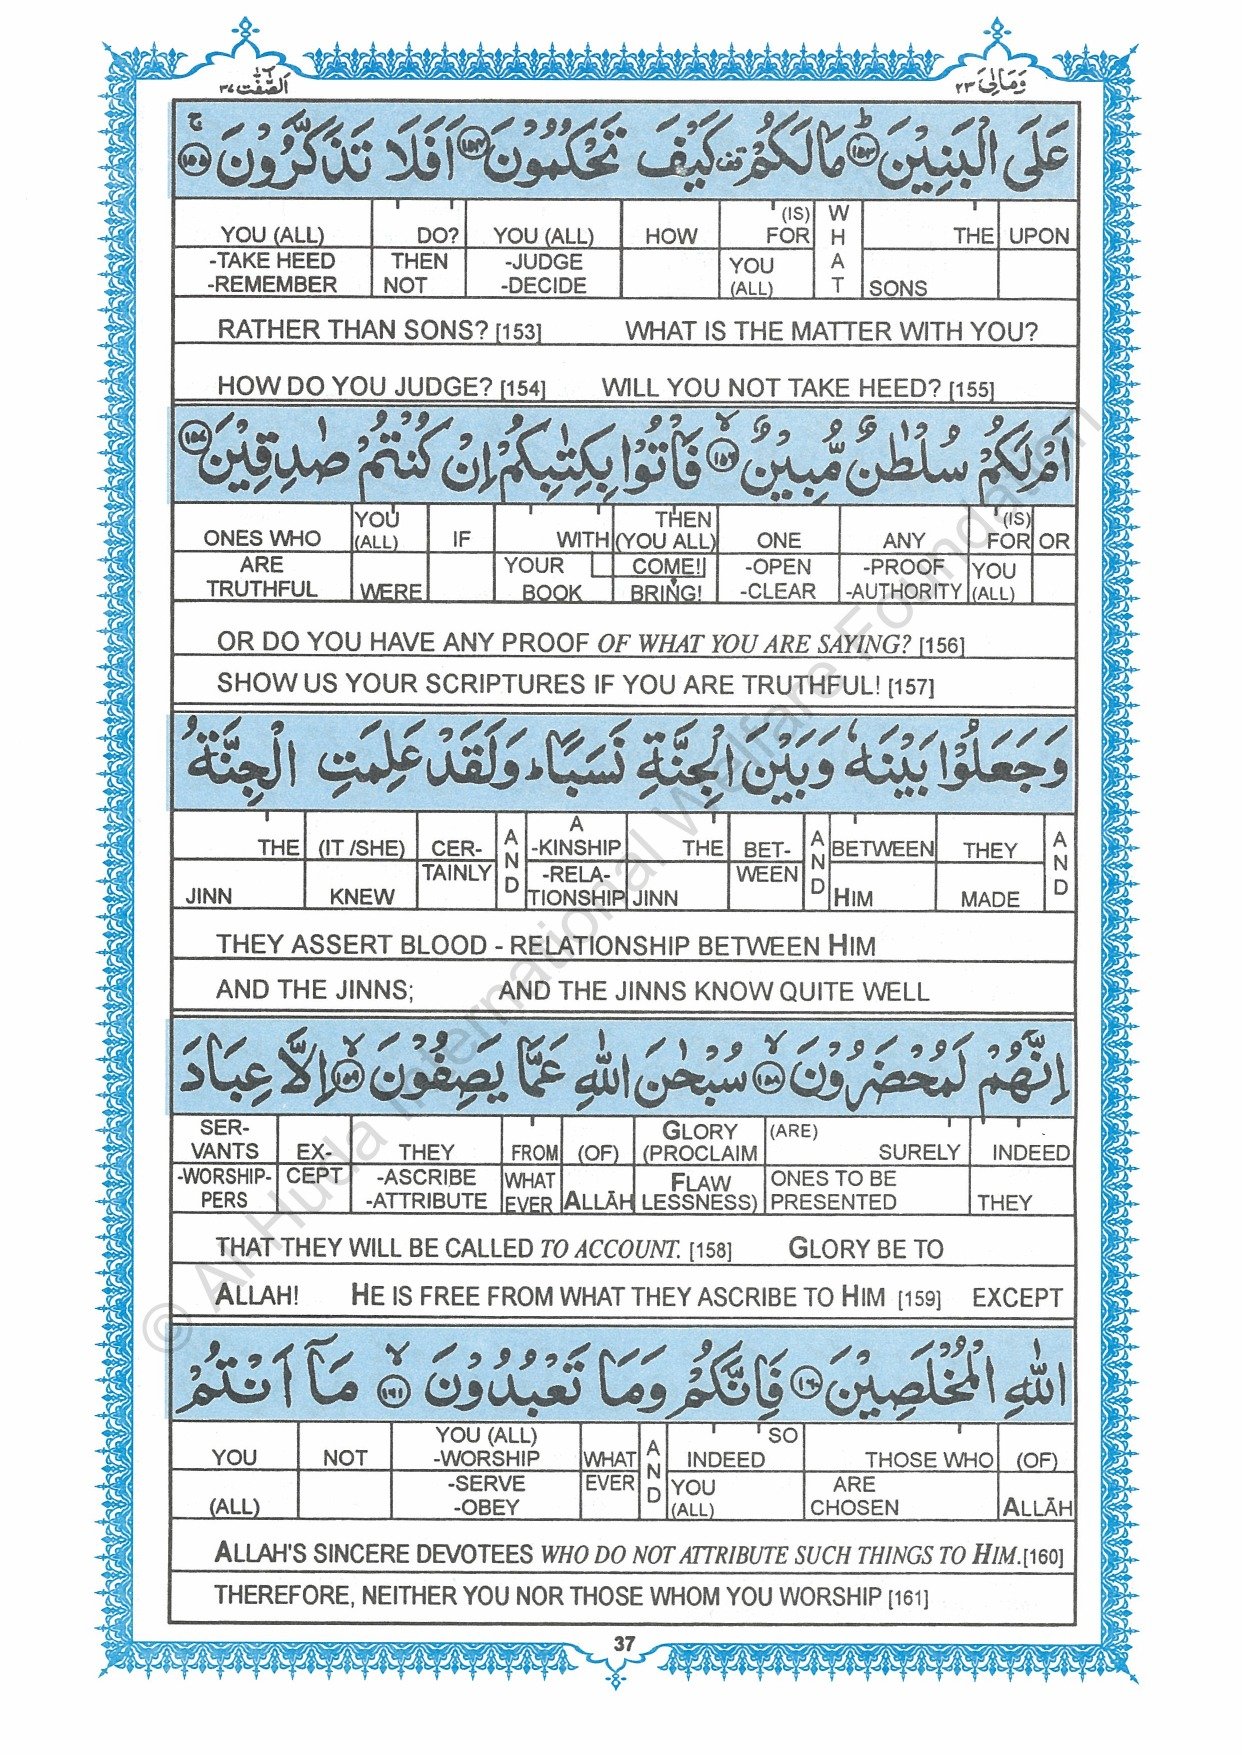 اَلصّٰٓفّٰت ٣٧
وَمَالِیَ ٢٣
عَلَى الْبَنِيْنَ ﴿١٥٣﴾ؕ مَالَكُمْ ࣞ كَيْفَ تَحْكُمُوْنَ ﴿١٥٤﴾ اَفَلَا تَذَكَّرُوْنَ ﴿١٥٥﴾ۚ
(IS) W
YOU (ALL) DO? YOU (ALL) HOW FOR H THE UPON
-TAKE HEED THEN -JUDGE YOU A
-REMEMBER NOT -DECIDE (ALL) T SONS
RATHER THAN SONS? [153] WHAT IS THE MATTER WITH YOU?
HOW DO YOU JUDGE? [154] WILL YOU NOT TAKE HEED? [155]
اَمْ لَكُمْ سُلْطٰنٌ مُّبِيْنٌ ﴿١٥٦﴾ۙ فَاْتُوْا بِكِتٰبِكُمْ اِنْ كُنْتُمْ صٰدِقِيْنَ ﴿١٥٧﴾
YOU THEN (IS)
ONES WHO (ALL) IF WITH (YOU ALL) ONE ANY FOR OR
ARE YOUR COME! -OPEN -PROOF YOU
TRUTHFUL WERE BOOK BRING! -CLEAR -AUTHORITY (ALL)
OR DO YOU HAVE ANY PROOF OF WHAT YOU ARE SAYING? [156]
SHOW US YOUR SCRIPTURES IF YOU ARE TRUTHFUL! [157]
وَجَعَلُوْا بَيْنَهٗ وَبَيْنَ الْجِنَّةِ نَسَبًا ؕ وَلَقَدْ عَلِمَتِ الْجِنَّةُ
A
THE (IT /SHE) CER- A -KINSHIP THE BET- A BETWEEN THEY A
TAINLY N -RELA- WEEN N N
JINN KNEW D TIONSHIP JINN D HIM MADE D
THEY ASSERT BLOOD - RELATIONSHIP BETWEEN HIM
AND THE JINNS; AND THE JINNS KNOW QUITE WELL
اِنَّهُمْ لَمُحْضَرُوْنَ ﴿١٥٨﴾ۙ سُبْحٰنَ اللّٰهِ عَمَّا يَصِفُوْنَ ﴿١٥٩﴾ۙ اِلَّا عِبَادَ
SER- GLORY (ARE)
VANTS EX- THEY FROM (OF) (PROCLAIM SURELY INDEED
-WORSHIP- CEPT -ASCRIBE WHAT FLAW ONES TO BE
PERS -ATTRIBUTE EVER ALLĀH LESSNESS) PRESENTED THEY
THAT THEY WILL BE CALLED TO ACCOUNT. [158] GLORY BE TO
ALLAH! HE IS FREE FROM WHAT THEY ASCRIBE TO HIM [159] EXCEPT
اللّٰهِ الْمُخْلَصِيْنَ ﴿١٦٠﴾ فَاِنَّكُمْ وَمَا تَعْبُدُوْنَ ﴿١٦١﴾ۙ مَاۤ اَنْتُمْ
YOU (ALL) A SO
YOU NOT -WORSHIP WHAT N INDEED THOSE WHO (OF)
-SERVE EVER D YOU ARE
(ALL) -OBEY (ALL) CHOSEN ALLĀH
ALLAH'S SINCERE DEVOTEES WHO DO NOT ATTRIBUTE SUCH THINGS TO HIM.[160]
THEREFORE, NEITHER YOU NOR THOSE WHOM YOU WORSHIP [161]
37
© Al-Huda International Welfare Foundation